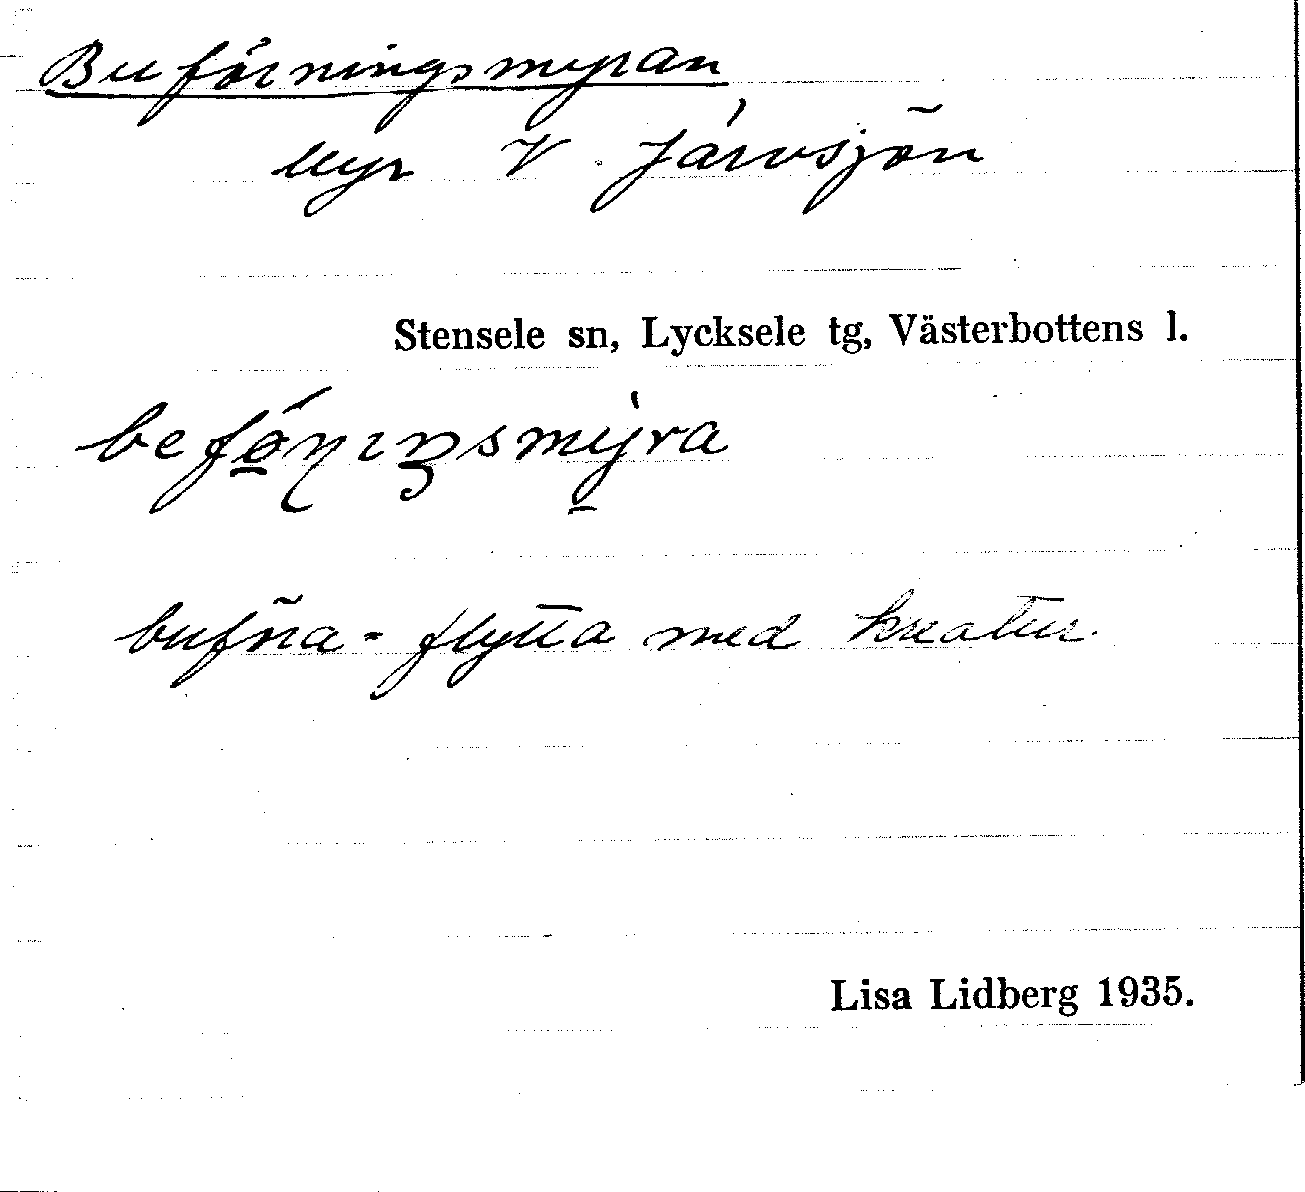 Buförningsmyran
Myr V. Järvsjön
Stensele sn, Lycksele tg, Västerbottens l.
buföra = flytta med kreatur.
Lisa Lidberg 1935.